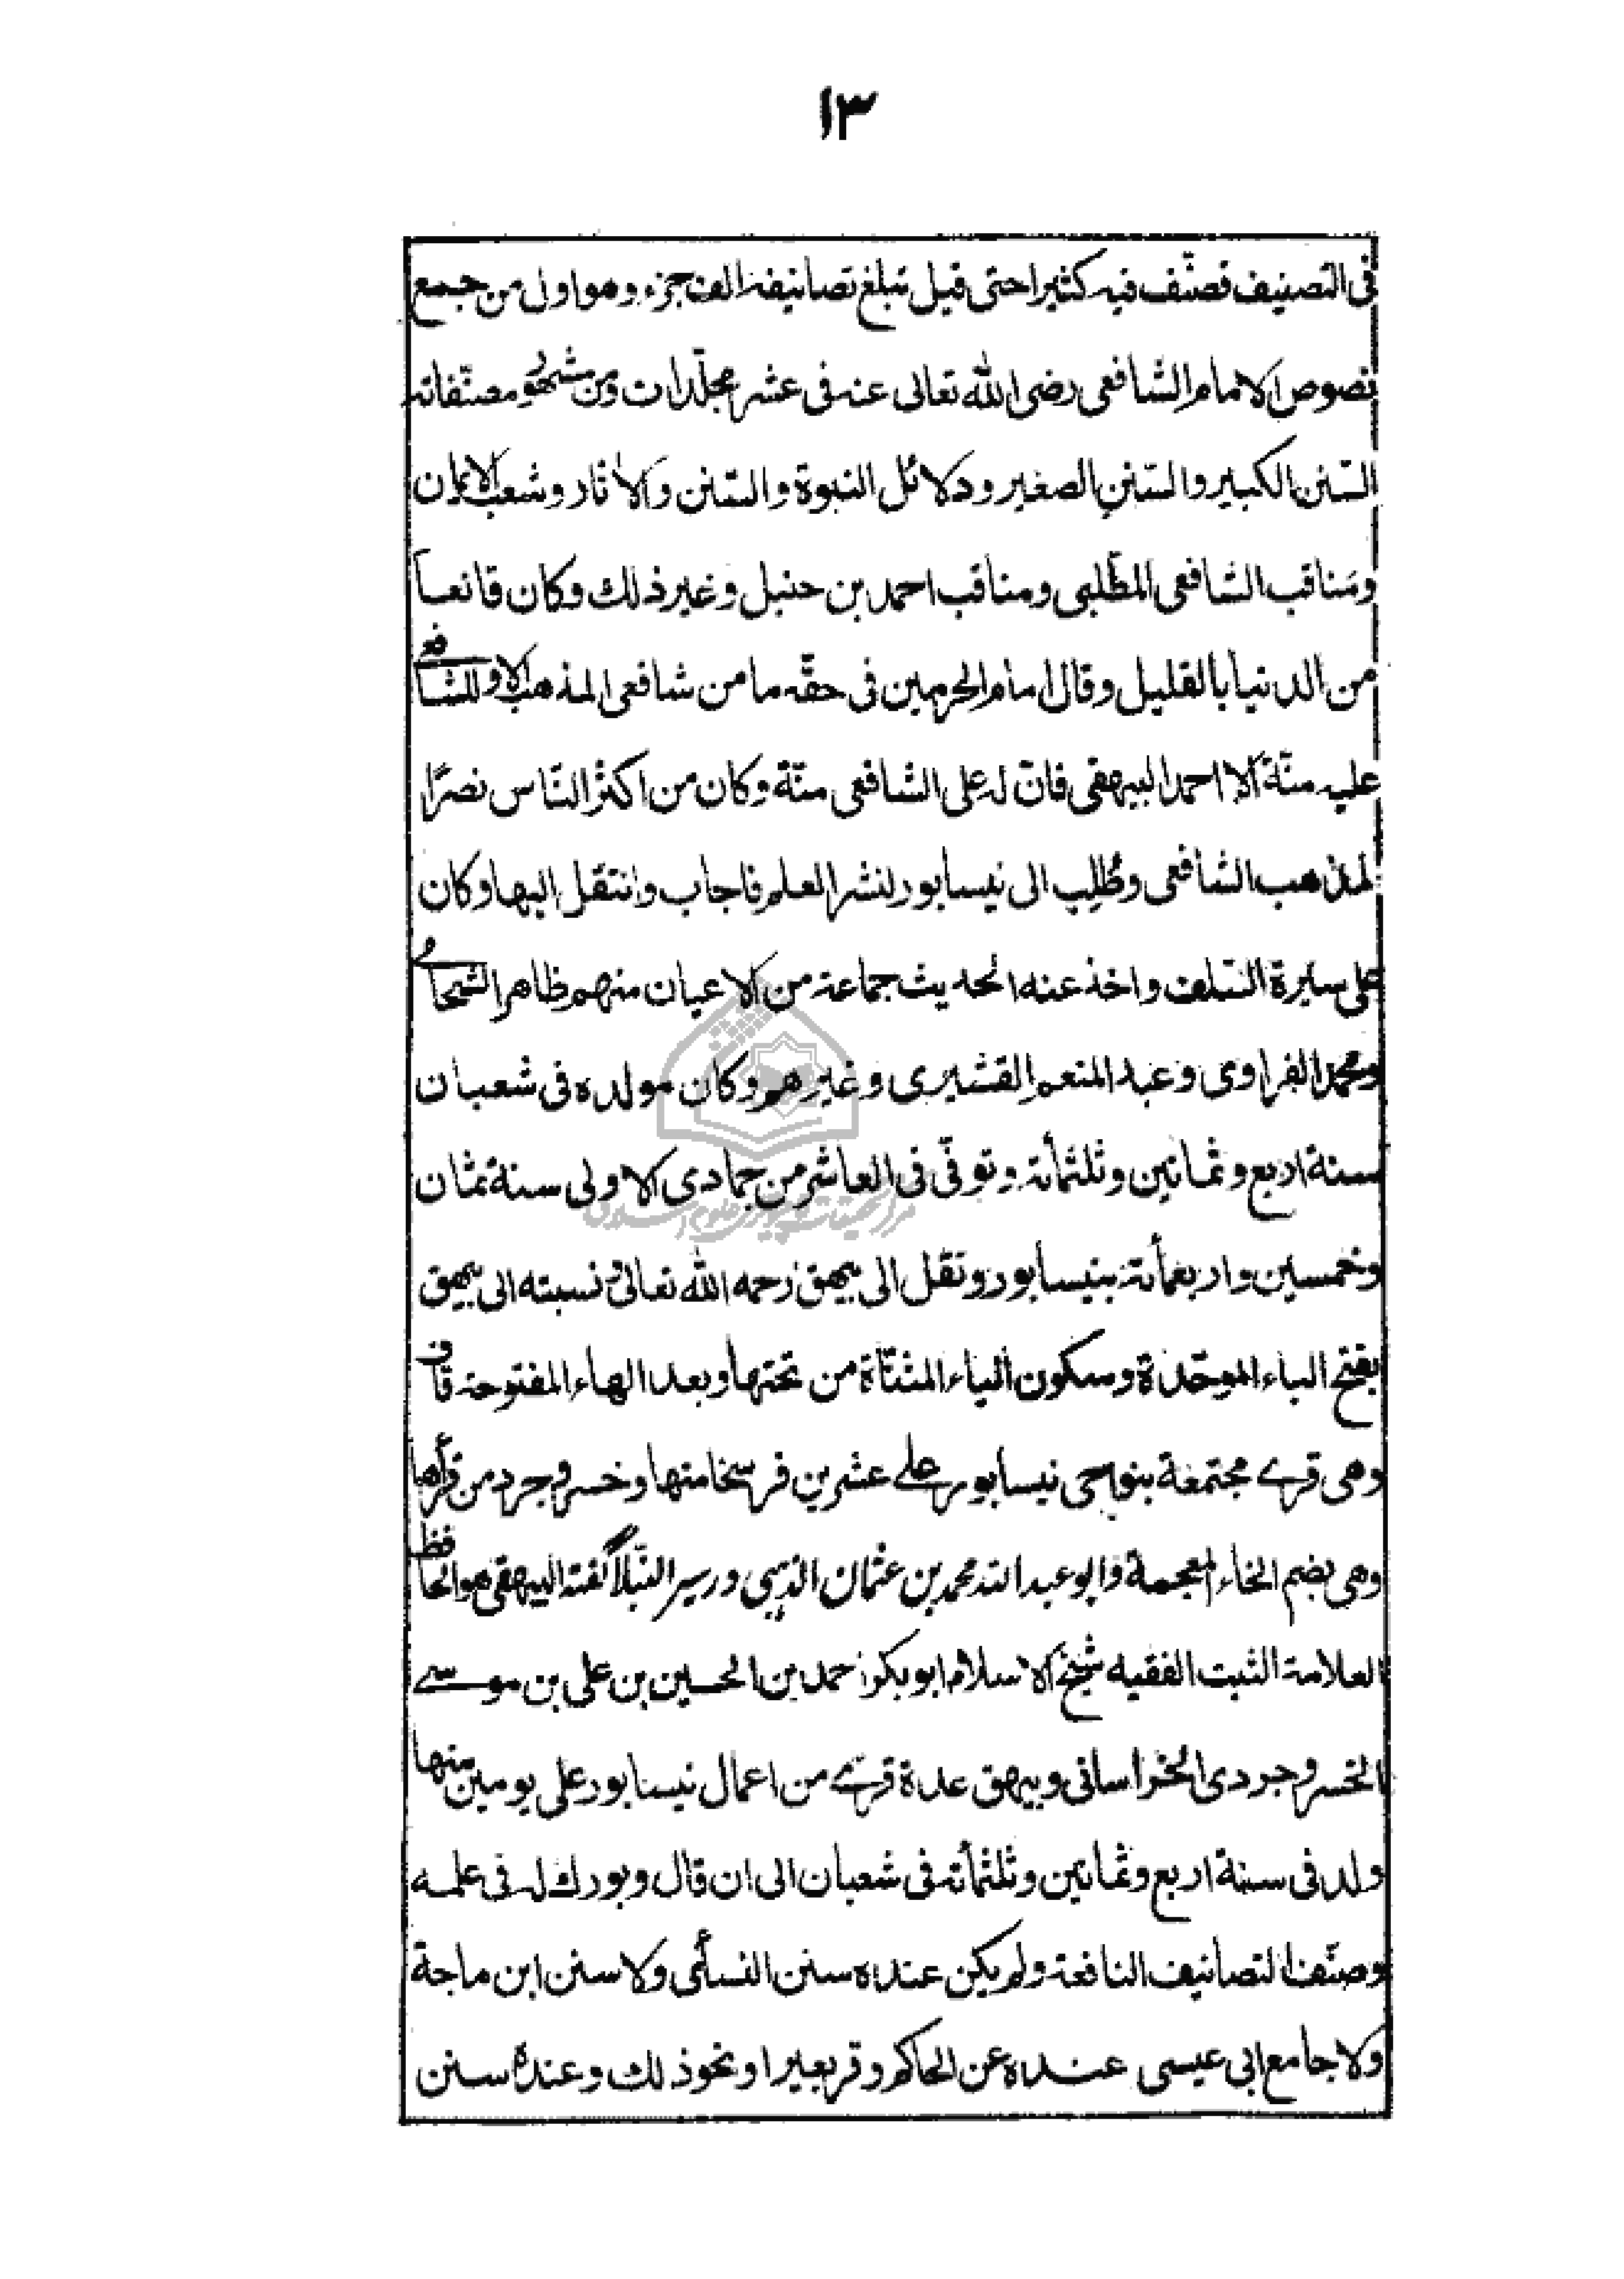 ١٣
فى التصنيف فصنّف فيه كثيرا حتى قيل تبلغ تصانيفه الف جزء وهو اول من جمع
نصوص الامام الشافعى رضى الله تعالى عنه فى عشر مجلّدات ومن مشهور مصنّفاته
السّنن الكبير والسّنن الصغير ودلائل النبوة والسّنن والاثار وشعب الايمان
ومناقب الشافعى المطّلبى ومناقب احمد بن حنبل وغير ذلك وكان قانعا
من الدنيا بالقليل وقال امام الحرمين فى حقّه ما من شافعى المذهب الا وللشافعى
عليه منّة الا احمد البيهقى فانّ له على الشافعى منّة وكان من اكثر النّاس نصرًا
لمذهب الشافعى وطُلِب الى نيسابور لنشر العلم فاجاب وانتقل اليها وكان
على سيرة السّلف واخذ عنه الحديث جماعة من الاعيان منهم ظاهر الشحامى
ومحمد الفراوى وعبد المنعم القشيرى وغيرهم وكان مولده فى شعبان
سنة اربع وثمانين وثلثمأته وتوفّى فى العاشر من جمادى الاولى سنة ثمان
وخمسين واربعمأته بنيسابور ونقل الى بيهق رحمه الله تعالى نسبته الى بيهق
بفتح الباء الموحّدة وسكون الياء المثنّاة من تحتها وبعد الهاء المفتوحة قاف
وهى قرے مجتمعة بنواحى نيسابور علے عشرين فرسخا منها وخسروجرد من قرأها
وهى بضم الخاء المعجمة وابو عبد الله محمد بن عثمان الذهبى در سير النّبلا گفته البيهقى هو الحافظ
العلامة الثبت الفقيه شيخ الاسلام ابو بكر احمد بن الحسين بن على بن موسے
الخسروجردى الخراسانى وبيهق عدة قرے من اعمال نيسابور على يومين منها
ولد فى سنة اربع وثمانين وثلثمأته فى شعبان الى ان قال وبورك له فى علمه
وصنّف التصانيف النافعة ولم يكن عنده سنن النسائى ولا سنن ابن ماجة
ولا جامع ابى عيسى عنده عن الحاكم وقر بعيرا ونحو ذلك وعنده سنن